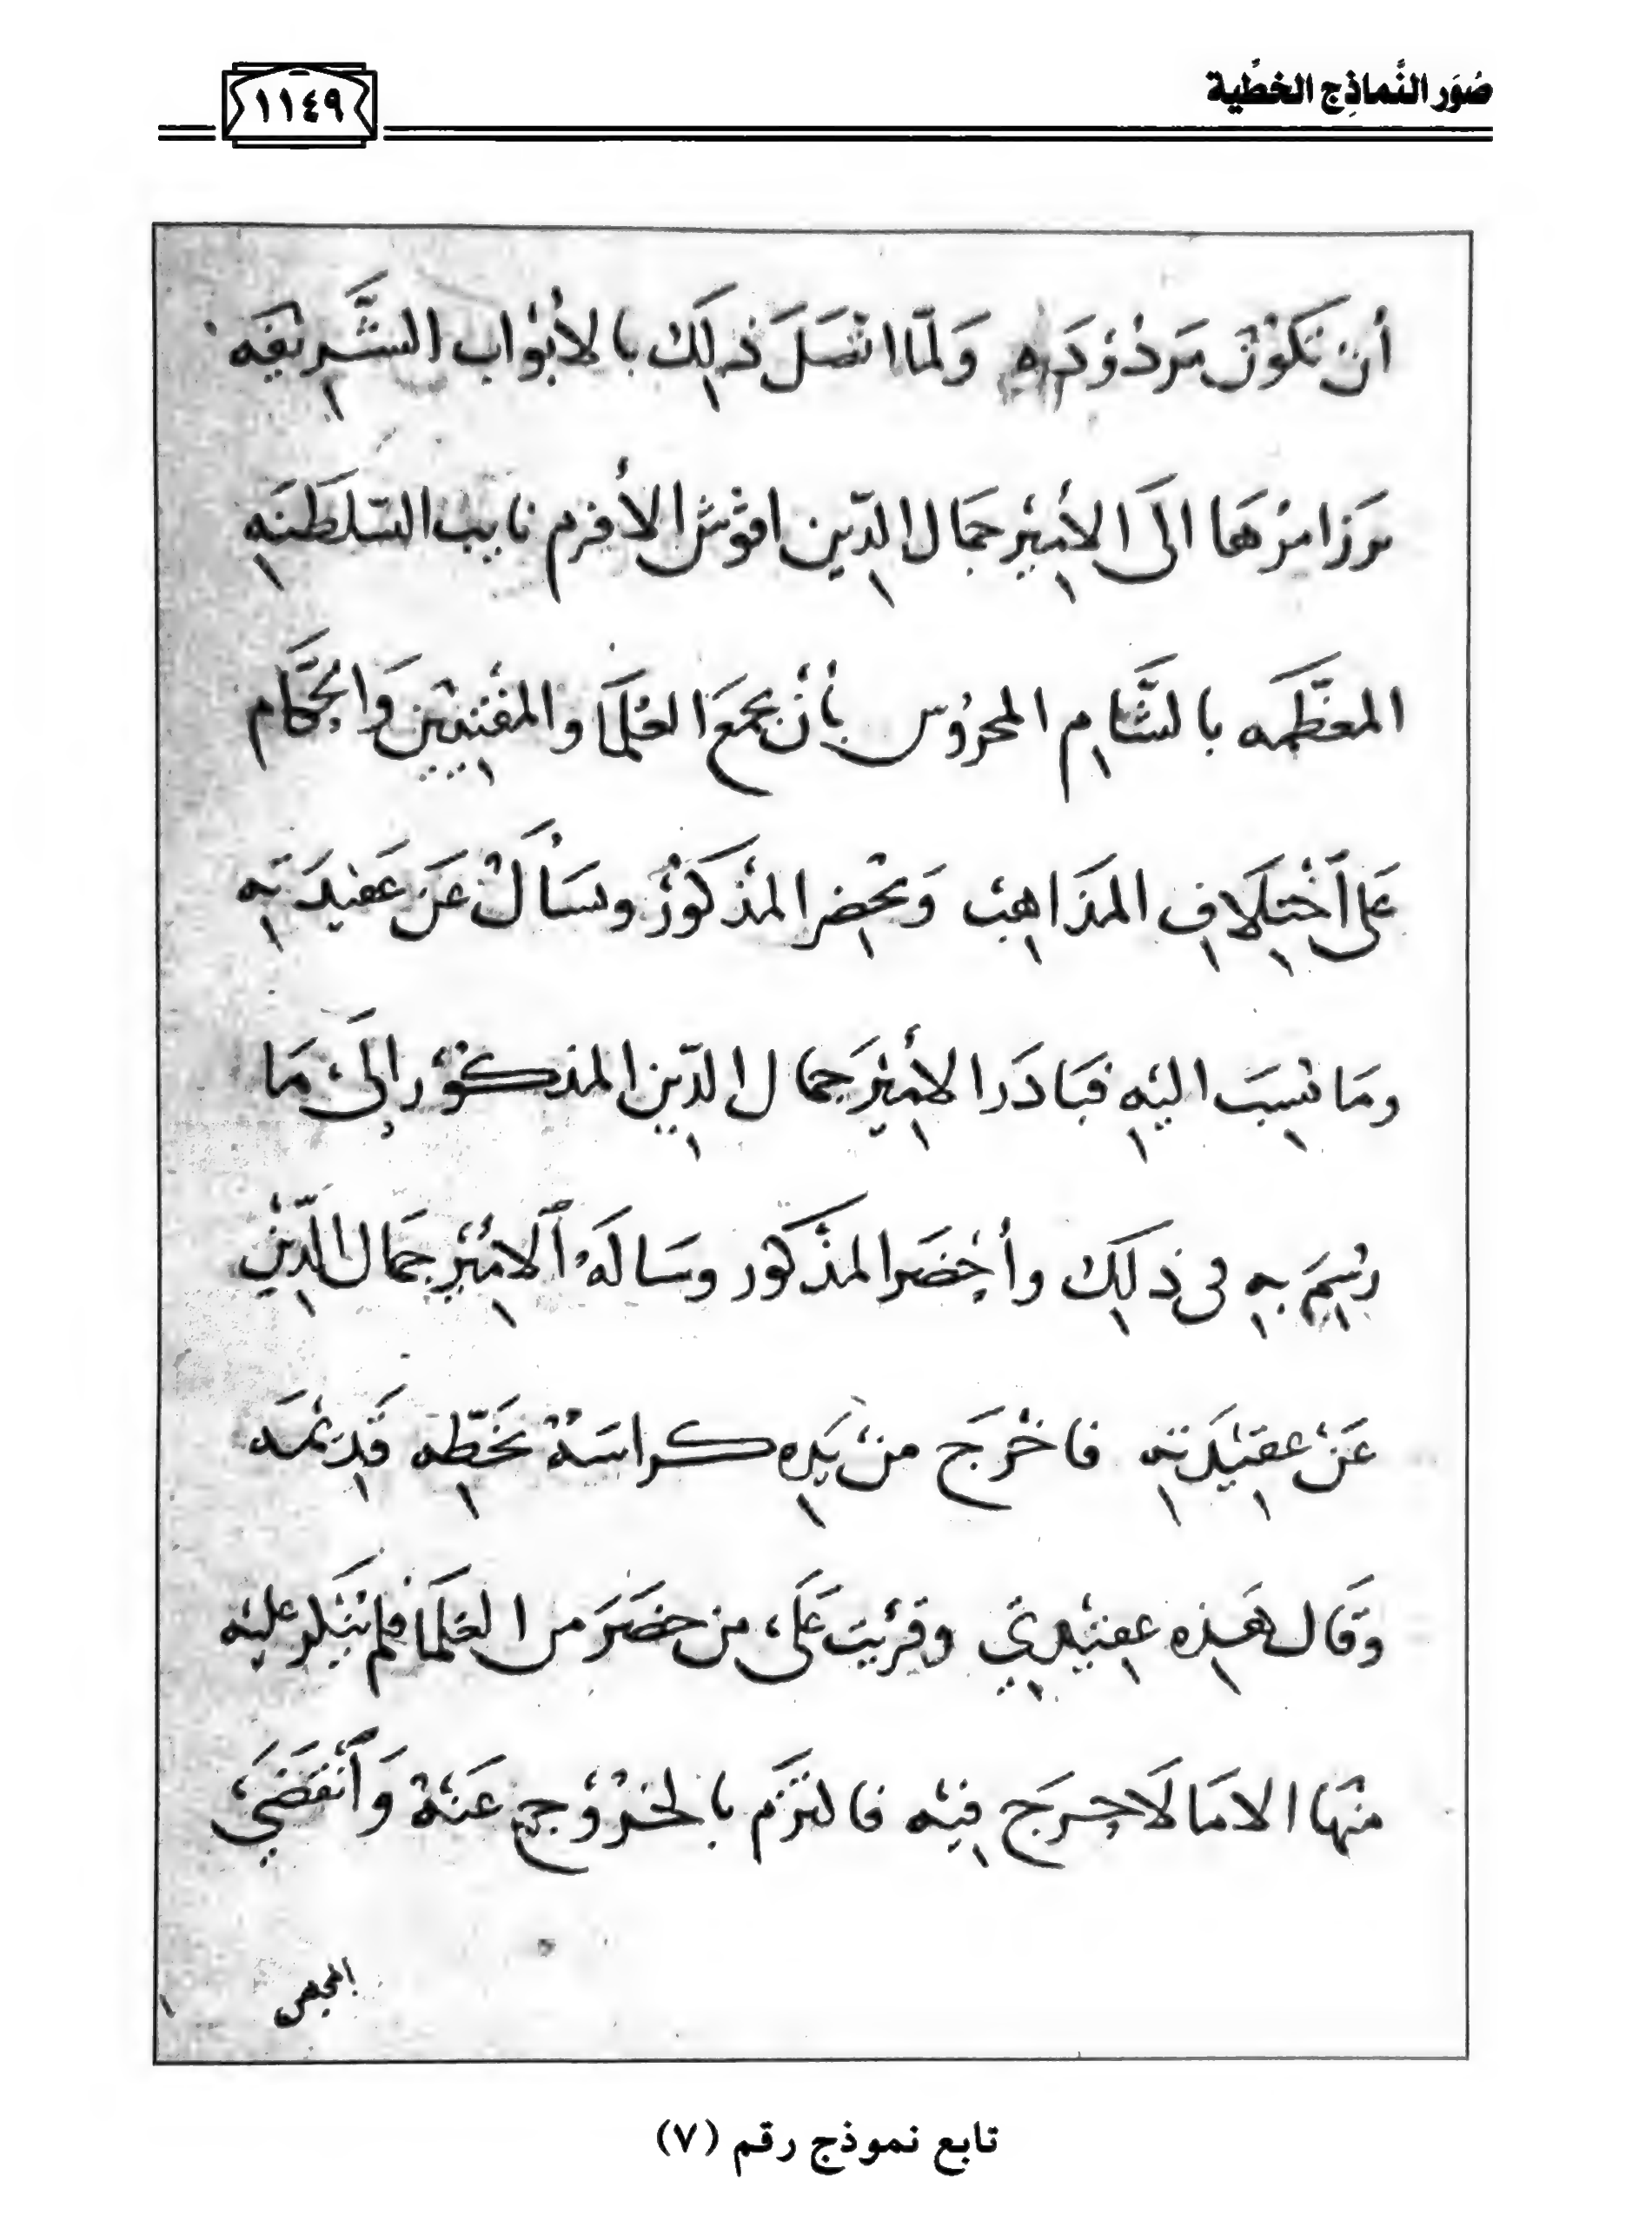 صُوَر النَّماذِج الخطِّية
١١٤٩
أن تكُوْن مَردُوْدَه وَلمّا اتصَلَ ذلِك بالأبْواب الشَّرِيْفَه
برَزَ امرُهَا الَى الأمِيْر جمَال الدِّين اقوش الأفرم نايب السّلطَنَه
المعَظّمه بالشَّامِ المحرُوْس بأنْ يجمَعَ العُلمَا والمفْتِيْين وَالحُكّام
عَلى اختِلَافِ المذَاهِب وَيحْضِر المذكوْرُ ويسَألْ عَن عَقِيدَتِه
ومَا نسِبَ اليْهِ فبَادَر الأمِيْر جمال الدِّين المذكوْر إلَى مَا
رسِمَ بهِ فى ذلِكَ وأحضَر المذْكور وسَالَهُ الامِيْر جمَال الدِّيْن
عَنْ عِقيْدَتِه فاخْرَج منْ يَدِه كراسَةْ بخَطِّه قَدِيْمَه
وَقال هَذِه عِقيْدِتي وقرِيت عَلَى من حضَر من العُلمَا فلم يُنكر عليْه
منْهَا الا مَا لَا حرَج فيْه فالتزَم بالخرُوْج عَنْهُ وَانْقَضَى
المجلس
تابع نموذج رقم (٧)